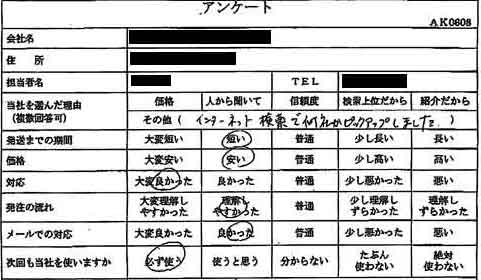 アンケート
AK0608
会社名
住 所
担当者名 TEL
当社を選んだ理由 (複数回答可) 価格 人から聞いて 信頼度 検索上位だから 紹介だから
その他 ( インターネット検索で何社かピックアップしました。 )
発送までの期間 大変短い 短い 普通 少し長い 長い
価格 大変安い 安い 普通 少し高い 高い
対応 大変良かった 良かった 普通 少し悪かった 悪い
発注の流れ 大変理解しやすかった 理解しやすかった 普通 少し理解しずらかった 理解しずらかった
メールでの対応 大変良かった 良かった 普通 少し悪かった 悪い
次回も当社を使いますか 必ず使う 使うと思う 分からない たぶん使わない 絶対使わない